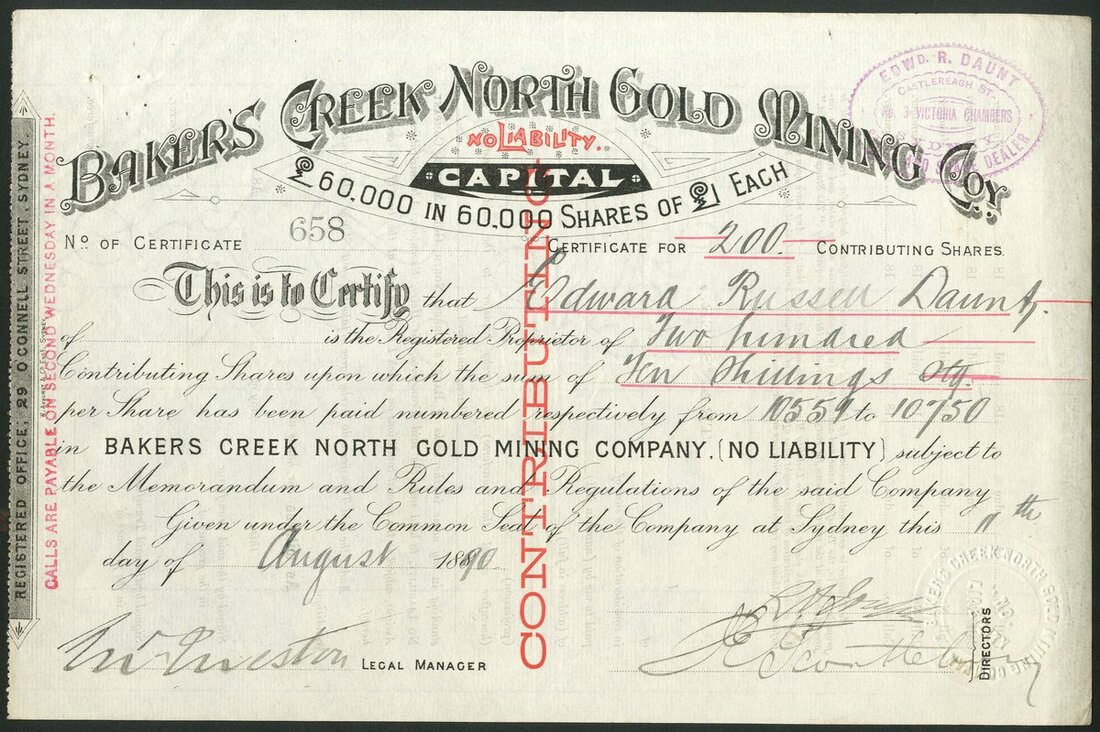 BAKER'S CREEK NORTH GOLD MINING COY.
NO LIABILITY.
CAPITAL
£60.000 IN 60.000 SHARES OF £1 EACH
EDWD. R. DAUNT
CASTLEREAGH ST.
NO. 3 VICTORIA CHAMBERS
SYDNEY
DEALER
No. OF CERTIFICATE 658
CERTIFICATE FOR 200 CONTRIBUTING SHARES.
This is to Certify that Edward Russell Daunt.
of is the Registered Proprietor of Two hundred
Contributing Shares upon which the sum of Ten Shillings stg.
per Share has been paid numbered respectively from 10551 to 10750
in BAKERS CREEK NORTH GOLD MINING COMPANY. (NO LIABILITY) subject to
the Memorandum and Rules and Regulations of the said Company
Given under the Common Seal of the Company at Sydney this 11th
day of August 1890
LEGAL MANAGER
DIRECTORS
CONTRIBUTING
REGISTERED OFFICE; 29 O'CONNELL STREET, SYDNEY.
CALLS ARE PAYABLE ON SECOND WEDNESDAY IN A MONTH.
BAKERS CREEK NORTH GOLD MINING